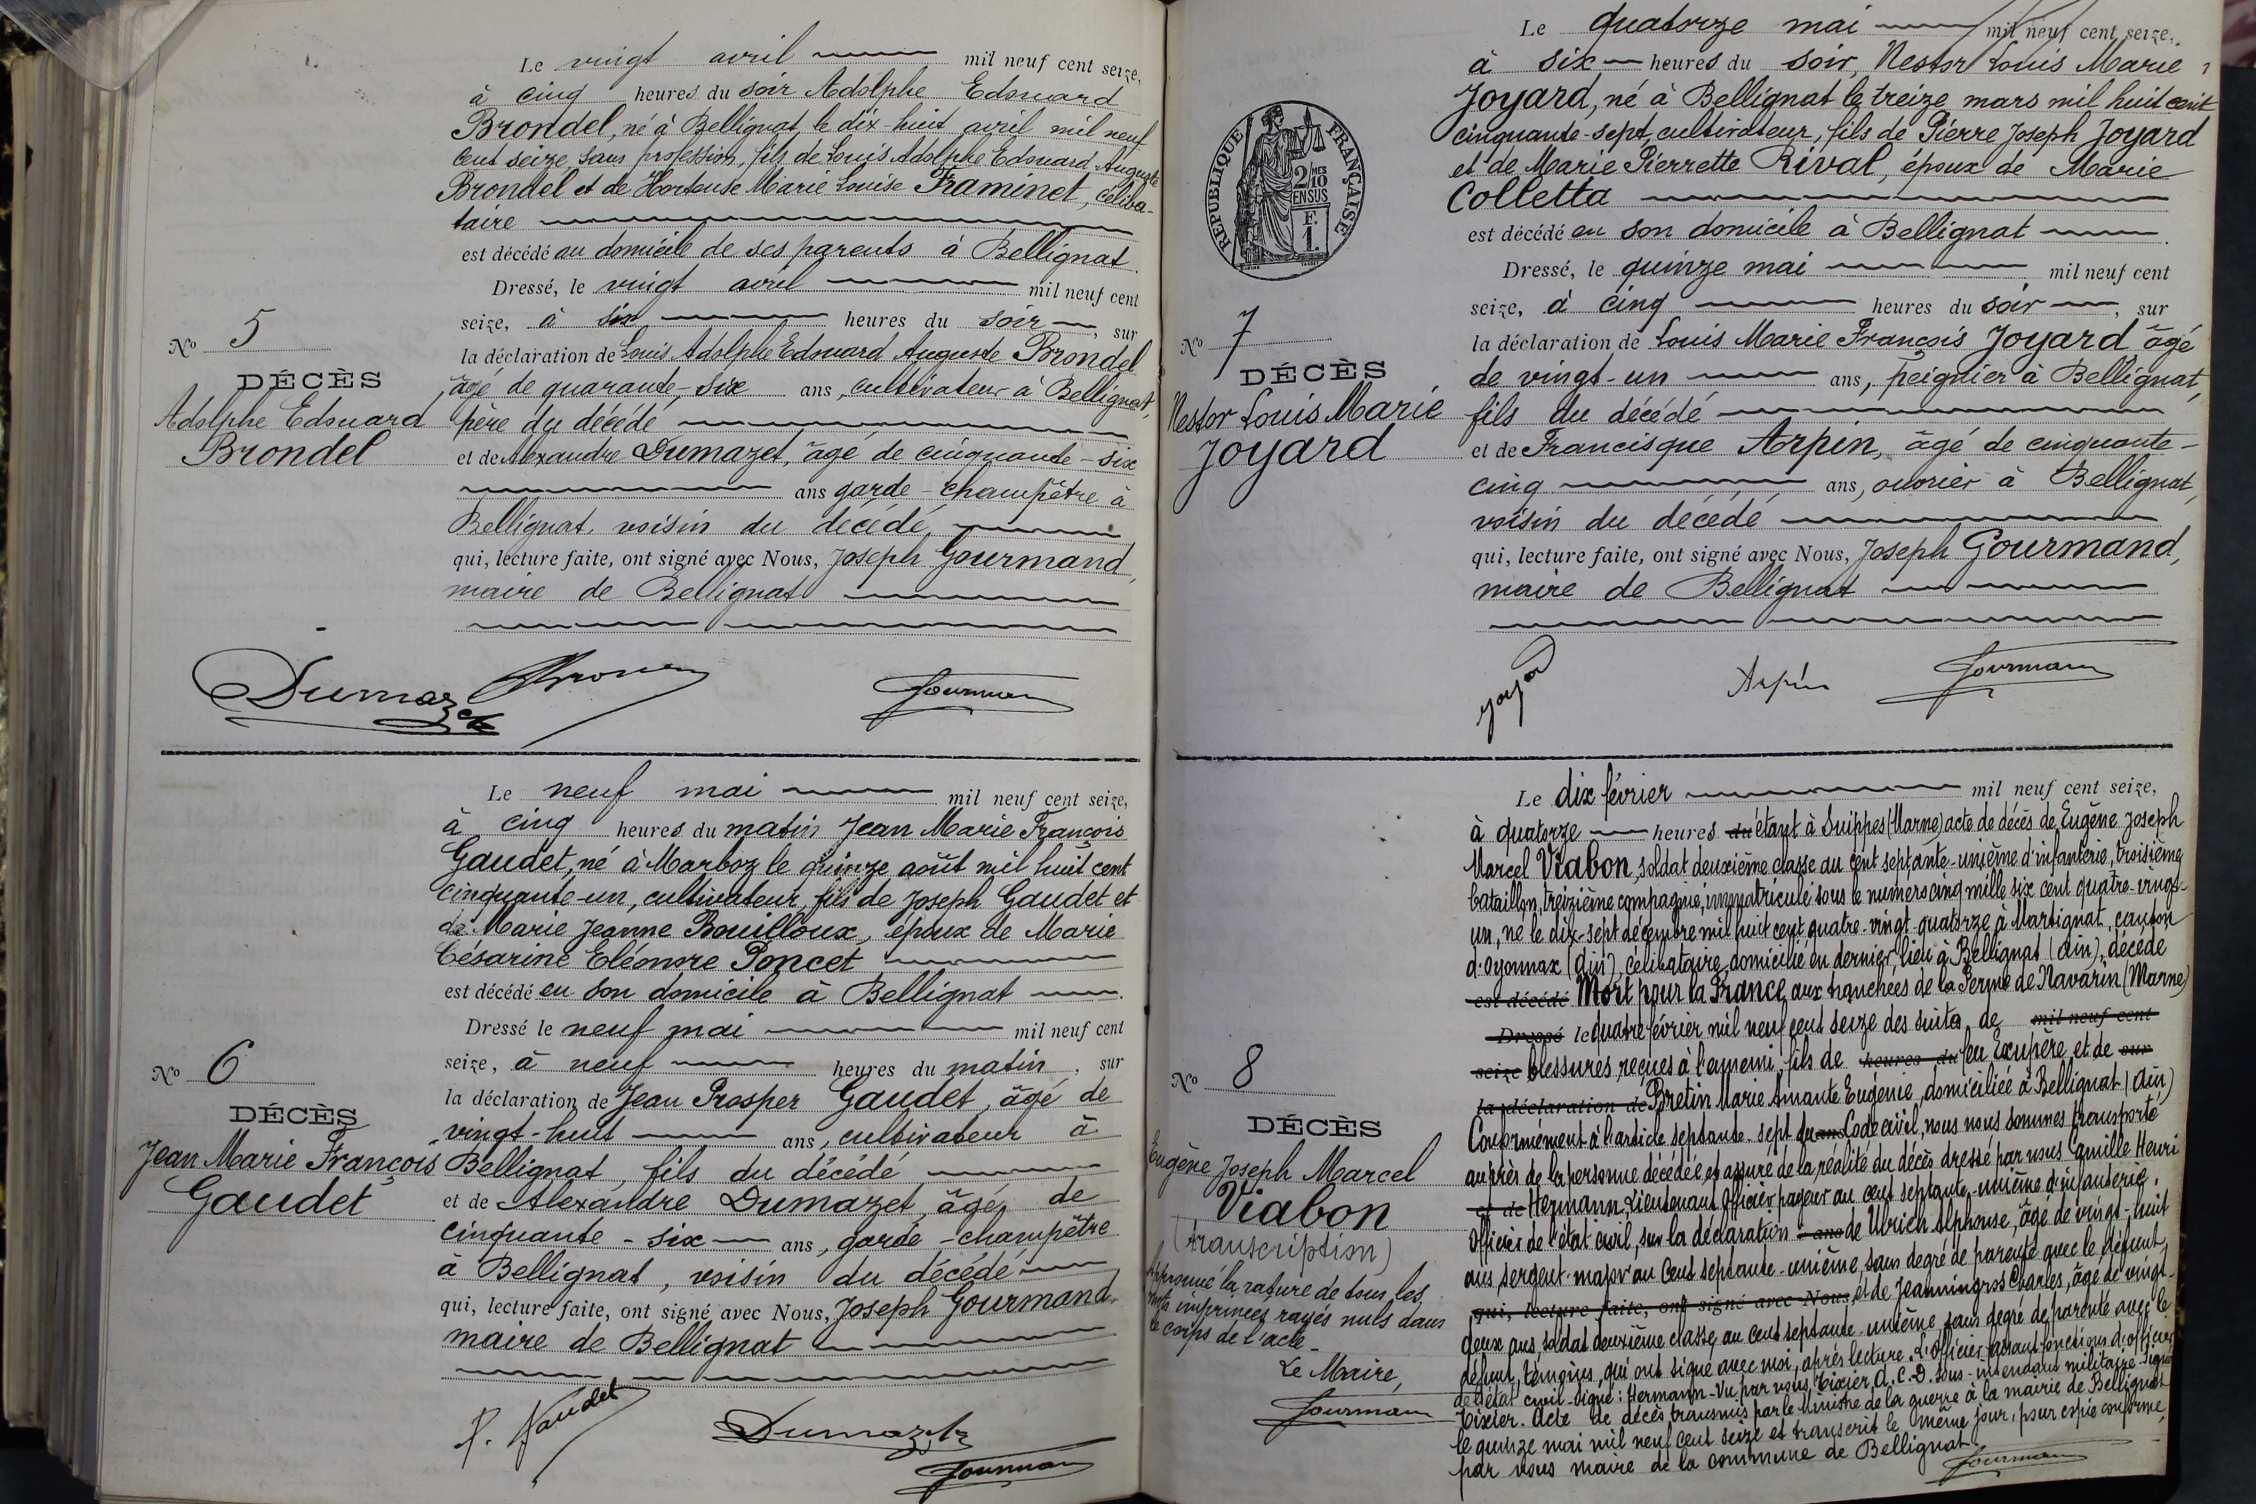 Le vingt avril mil neuf cent seize,
à cinq heures du soir Adolphe Edouard
Brondel, né à Bellignat, le dix-huit avril mil neuf
cent seize, sans profession, fils de Louis Adolphe Edouard Auguste
Brondel et de Hortense Marie Louise Framinet, céliba-
taire
est décédé au domicile de ses parents à Bellignat.
Dressé, le vingt avril mil neuf cent
seize, à six heures du soir, sur
la déclaration de Louis Adolphe Edouard Auguste Brondel
âgé de quarante-six ans, cultivateur à Bellignat,
père du décédé
et de Alexandre Dumazet, âgé de cinquante-six
ans garde-champêtre à
Bellignat, voisin du décédé,
qui, lecture faite, ont signé avec Nous, Joseph Gourmand,
maire de Bellignat
No 5
DÉCÈS
Adolphe Edouard
Brondel
Dumazet Gourmand
Le neuf mai mil neuf cent seize,
à cinq heures du matin Jean Marie François
Gaudet, né à Marboz le quinze août mil huit cent
cinquante-un, cultivateur, fils de Joseph Gaudet et
de Marie Jeanne Bouilloux, époux de Marie
Césarine Eléonore Poncet
est décédé en son domicile à Bellignat
Dressé le neuf mai mil neuf cent
seize, à neuf heures du matin, sur
la déclaration de Jean Prosper Gaudet, âgé de
vingt-huit ans, cultivateur à
Bellignat, fils du décédé
et de Alexandre Dumazet, âgé de
cinquante-six ans, garde-champêtre
à Bellignat, voisin du décédé
qui, lecture faite, ont signé avec Nous, Joseph Gourmand,
maire de Bellignat
No 6
DÉCÈS
Jean Marie François
Gaudet
P. Gaudet Dumazet
Gourmand
Le quatorze mai mil neuf cent seize,
à six heures du soir, Nestor Louis Marie
Joyard, né à Bellignat le treize mars mil huit cent
cinquante-sept, cultivateur, fils de Pierre Joseph Joyard
et de Marie Pierrette Rival, époux de Marie
Colletta
est décédé en son domicile à Bellignat
Dressé, le quinze mai mil neuf cent
seize, à cinq heures du soir, sur
la déclaration de Louis Marie François Joyard âgé
de vingt-un ans, peignier à Bellignat,
fils du décédé
et de Francisque Arpin, âgé de cinquante-
cinq ans, ouvrier à Bellignat,
voisin du décédé
qui, lecture faite, ont signé avec Nous, Joseph Gourmand,
maire de Bellignat
RÉPUBLIQUE FRANÇAISE
2 MES
10
EN SUS
F.
1.
No 7
DÉCÈS
Nestor Louis Marie
Joyard
Joyard Arpin Gourmand
Le dix février mil neuf cent seize,
à quatorze heures du étant à Suippes (Marne) acte de décès de Eugène Joseph
Marcel Viabon, soldat deuxième classe au cent septante-unième d'infanterie, troisième
bataillon, treizième compagnie, immatriculé sous le numéro cinq mille six cent quatre-vingt-
un, né le dix-sept décembre mil huit cent quatre-vingt-quatorze à Martignat, canton
d'Oyonnax (Ain), célibataire, domicilié en dernier lieu à Bellignat (Ain), décédé
est décédé Mort pour la France aux tranchées de la Ferme de Navarin (Marne)
Dressé le quatre février mil neuf cent seize des suites de mil neuf cent
seize blessures reçues à l'ennemi, fils de heures du feu Exupère et de sur
la déclaration de Bretin Marie Amante Eugénie, domiciliée à Bellignat (Ain)
Conformément à l'article septante-sept du ans Code civil, nous nous sommes transporté
auprès de la personne décédée et assuré de la réalité du décès dressé par nous Camille Henri
et de Hermann, Lieutenant Officier payeur au cent septante-unième d'infanterie,
Officier de l'état civil, sur la déclaration ans de Ulrich Alphonse, âgé de vingt-huit
ans, sergent-major au cent septante-unième, sans degré de parenté avec le défunt,
qui, lecture faite, ont signé avec Nous, et de Jeanningros Charles, âgé de vingt-
deux ans, soldat deuxième classe au cent septante-unième sans degré de parenté avec le
défunt, témoins, qui ont signé avec moi, après lecture. L'officier faisant fonctions d'officier
de l'état civil-signé: Hermann-Vu par nous Tixier A.C.D. Sous-intendant militaire-signé
Tixier. Acte de décès transmis par le Ministre de la guerre à la mairie de Bellignat
le quinze mai mil neuf cent seize et transcrit le même jour, pour copie conforme,
par nous maire de la commune de Bellignat.
Gourmand
No 8
DÉCÈS
Eugène Joseph Marcel
Viabon
(transcription)
Approuvé la rature de tous les
mots imprimés rayés nuls dans
le corps de l'acte.
Le Maire,
Gourmand